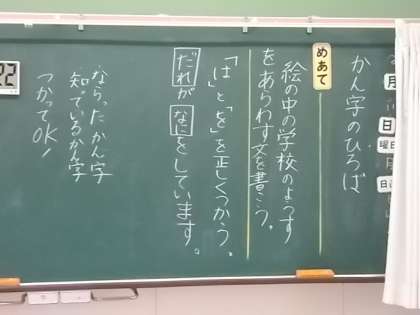 月
日
曜日
日直
かん字のひろば
めあて
絵の中の学校のようす
をあらわす文を書こう。
「は」と「を」を正しくつかう。
だれが なにをしています。
ならったかん字
知っているかん字
つかってOK!
22